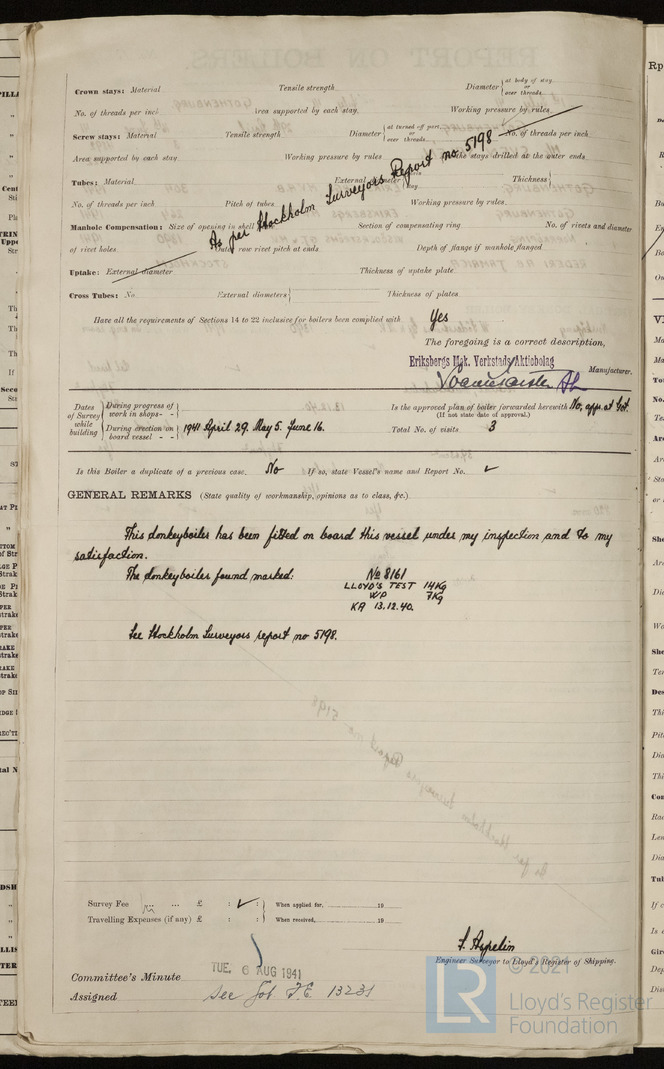 Crown stays: Material Tensile strength Diameter { at body of stay, or over threads
No. of threads per inch Area supported by each stay Working pressure by rules
Screw stays: Material Tensile strength Diameter { at turned off part, or over threads No. of threads per inch
Area supported by each stay Working pressure by rules the stays drilled at the outer ends
Tubes: Material External diameter { Thickness {
No. of threads per inch Pitch of tubes Working pressure by rules
As per Stockholm Surveyors Report no 5198
Manhole Compensation: Size of opening in shell Section of compensating ring No. of rivets and diameter
of rivet holes Outer row rivet pitch at ends Depth of flange if manhole flanged
Uptake: External diameter Thickness of uptake plate
Cross Tubes: No. External diameters { Thickness of plates
Have all the requirements of Sections 14 to 22 inclusive for boilers been complied with Yes
The foregoing is a correct description,
Eriksbergs Mek. Verkstads Aktiebolag
Manufacturer.
Dates of Survey while building { During progress of work in shops - - Is the approved plan of boiler forwarded herewith No, app. at Got.
(If not state date of approval.)
During erection on board vessel - - } 1941 April 29. May 5. June 16. Total No. of visits 3
Is this Boiler a duplicate of a previous case. No If so, state Vessel's name and Report No. ✓
GENERAL REMARKS (State quality of workmanship, opinions as to class, &c.)
This donkeyboiler has been fitted on board this vessel under my inspection and to my
satisfaction.
The donkeyboiler found marked: No 8161
LLOYD'S TEST 14 Kg
WP 7 Kg
KA 13.12.40.
See Stockholm Surveyors report no 5198.
Survey Fee ... ... £ : ✓ : } When applied for, 19
Travelling Expenses (if any) £ : : } When received, 19
F. Aspelin
Engineer Surveyor to Lloyd's Register of Shipping.
Committee's Minute TUE. 6 AUG 1941
Assigned See Got F.E. 13231
© 2021
LR Lloyd's Register
Foundation